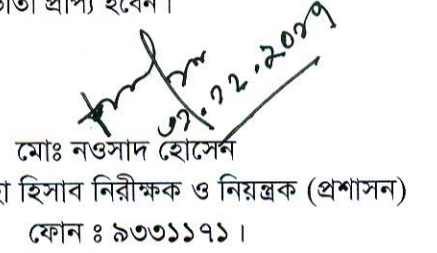 প্রাপ্য হবেন।
মোঃ নওসাদ হোসেন
হিসাব নিরীক্ষক ও নিয়ন্ত্রক (প্রশাসন)
ফোন ঃ ৯৩৩১১৭১।